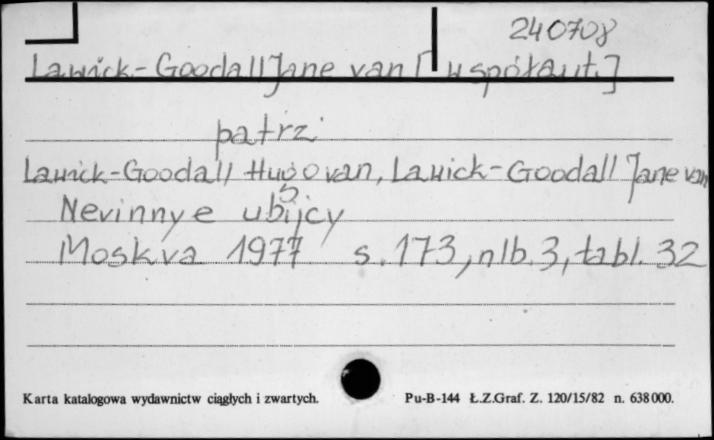 240708
Lawick-Goodall Jane van [współaut.]
patrz
Lawick-Goodall Hugo van, Lawick-Goodall Jane van
Nevinnye ubijcy
Moskva 1977 s. 173, nlb. 3, tabl. 32
Karta katalogowa wydawnictw ciągłych i zwartych. Pu-B-144 Ł.Z.Graf. Z. 120/15/82 n. 638000.